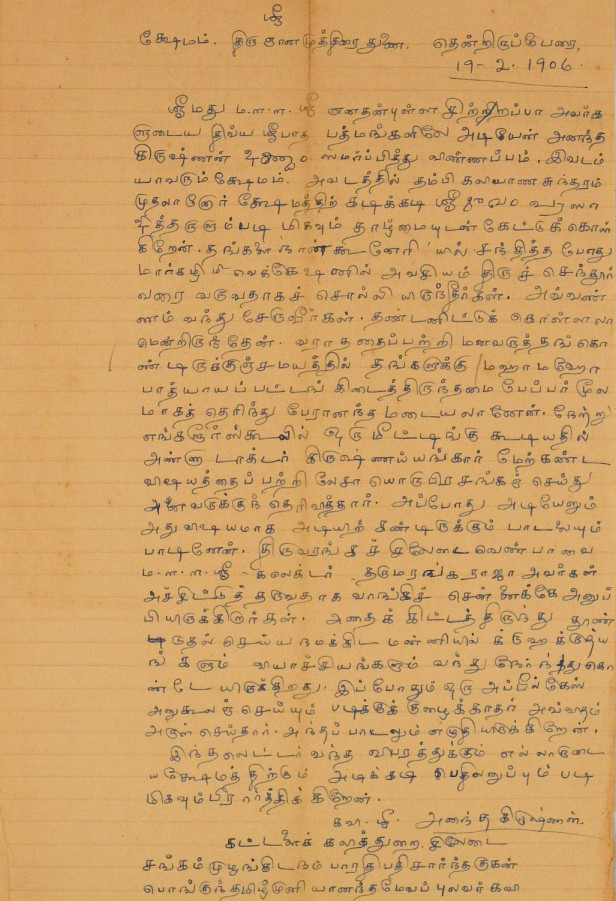 ஸ்ரீ
க்ஷேமம். திருஞானமுத்திரை துணை. தென்றிருப்பேரை,
19-2-1906.
ஸ்ரீமது ம-ள-ள-ஸ்ரீ சிற்றிறப்பா அவர்க
ளுடைய திவ்ய ஸ்ரீபாத பத்மங்களிலே அடியேன் அனந்த
கிருஷ்ணன் ஸமர்ப்பித்து விண்ணப்பம். இவடம்
யாவரும் க்ஷேமம். அவடத்தில் தம்பி கலியாண சுந்தரம்
முதலானோர் க்ஷேமத்திற் கடிக்கடி ஸ்ரீ
மிகவும் தாழ்மையுடன் கேட்டுக்கொள்
கிறேன். தங்களை நான் சந்தித்த போது
மார்கழி வெக்கேஷனில் அவசியம் திருச் செந்தூர்
வரை வருவதாகச் சொல்லி யிருந்தீர்கள். அவ்வண்
ணம் வந்து சேருவீர்கள். தண்டனிட்டுக் கொள்ளலா
மென்றிருந்தேன். வராததைப்பற்றி மனவருத்தங் கொ
ண்டிருக்குஞ்சமயத்தில் தங்களுக்கு மஹாமஹோ
பாத்யாயப்பட்டங் கிடைத்திருந்தமை பேப்பர் மூல
மாகத் தெரிந்து பேரானந்த மடையலானேன். நேற்று
எங்களூர் ஸ்கூலில் ஒரு மீட்டிங்கு கூடியதில்
அண்ணா டாக்டர் கிருஷ்ணய்யங்கார் மேற்கண்ட
விஷயத்தைப் பற்றி லேசா யொருபிரசங்கஞ் செய்து
அனைவருக்குந் தெரிவித்தார். அப்போது அடியேனும்
அதுவிஷயமாக அடியிற் கண்டிருக்கும் பாடலையும்
பாடினேன். திருவரங்கச் சிலேடை வெண்பாவை
ம-ள-ள-ஸ்ரீ - கலெக்டர் தருமரங்க ராஜா அவர்கள்
அச்சிட்டுத் தருவதாக வாங்கிச் சென்னைக்கே அனுப்
பியிருக்கிறார்கள். அதைக் கிட்டத்திருந்து தூண்
டுதல் செய்ய நமக்கிட மன்னியில்
ங்களும் வியாச்சியங்களும் வந்து நேர்ந்துகொ
ண்டே யிருக்கிறது. இப்போதும் ஒரு அப்பீல்கேஸ்
அனுகூலஞ் செய்யும் படிக்குக் குழைக்காதர்
அருள் செய்தார். அந்தப் பாடலும் எழுதியிருக்கிறேன்.
இந்த லெட்டர் வந்த விபரத்துக்கும் எல்லாருடை
யக்ஷேமத்திற்கும் அடிக்கடி பதிலனுப்பும்படி
மிகவும் பிரார்த்திக்கிறேன்.
அனந்த கிருஷ்ணன்.
கட்டளைக் கலித்துறை, சிலேடை
சங்கம்முழங்கிட நம் பாரதிபதி சார்ந்தருகன்
பொங்குந்தமிழ்முனி யானந்தமேவப் புலவர்